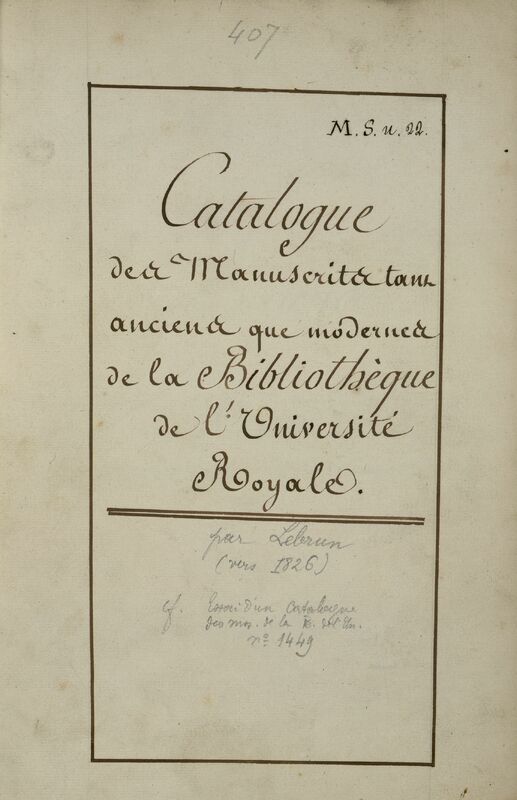 407
M. S. n. 22.
Catalogue
des Manuscrits tant
anciens que modernes
de la Bibliothèque
de l'Université
Royale.
par Lebrun
(vers 1826)
cf. Essai d'un Catalogue
des mss. de la B. de l'Un.
nº 1449